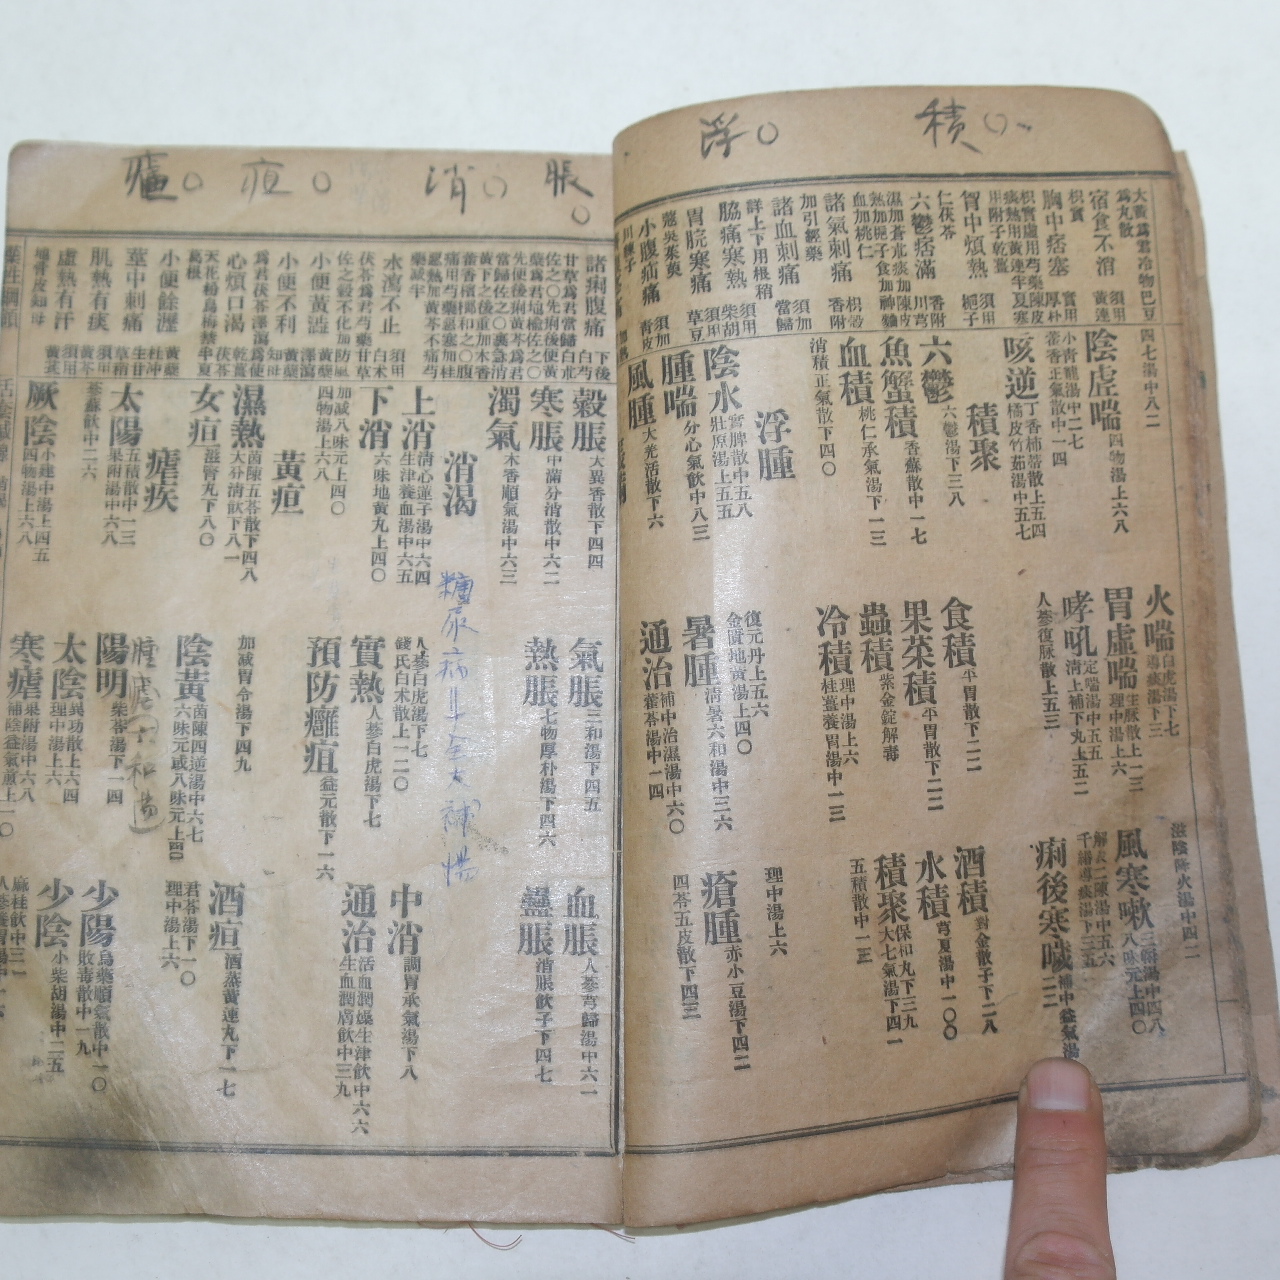 積○
浮○
大黃爲君冷物巴豆
爲丸散
宿食不消 須用黃連
枳實
胸中痞塞 實用厚朴
枳實虛用芍藥陳皮
痰熱用黃連半夏寒
用附子乾薑
胷中煩熱 須用梔子
仁茯苓
六鬱痞滿 香附川芎
濕加蒼朮痰加陳皮
熱加梔子食加神麯
血加桃仁
諸氣刺痛 枳殼香附
加引經藥
諸血刺痛 須加當歸
詳上下用根稍
脇痛寒熱 須用柴胡
胃脘寒痛 須用草豆
蔻吳茱萸
小腹疝痛 須加靑皮
川楝子
四七湯中八二
陰虛喘 四物湯上六八
小靑龍湯中二七
藿香正氣散中一四
咳逆 丁香柿蔕散上五四
橘皮竹茹湯中五七
積聚
六鬱 六鬱湯下三八
魚蟹積 香蘇散中一七
血積 桃仁承氣湯下一三
消積正氣散下四〇
浮腫
陰水 實脾散中五八
壯原湯上五五
腫喘 分心氣飮中八三
風腫 大光活散下六
火喘 白虎湯下七
導痰湯下三三
胃虛喘 生脉散上一三
理中湯上六
哮吼 定喘湯中五五
淸上補下丸上五二
人蔘復脉散上五三
食積 平胃散下二二
果菜積 平胃散下二二
蟲積 紫金錠解毒
冷積 理中湯上六
桂薑養胃湯中一三
復元丹上五六
金匱地黃湯上四〇
暑腫 淸暑六和湯中三六
通治 補中治濕湯中六〇
藿苓湯中一四
滋陰降火湯中四二
風寒嗽 三拗湯中四八
八味元上四〇
解表二陳湯中五六
千緡導痰湯下三五
痢後寒嘁 補中益氣湯二二
酒積 對金散子下二八
水積 芎夏湯中一〇〇
積聚 保和丸下三九
大七氣湯下四一
五積散中一三
理中湯上六
瘡腫 赤小豆湯下四二
四苓五皮散下四三
脹○
消○
疸○
瘧○
諸痢腹痛 下後白芍
甘草爲君當歸白朮
佐之〇先痢後便黃
蘗爲君地楡佐之〇
先便後痢黃芩爲君
當歸佐之〇裏急消
黃下之後重加木香
藿香檳榔和之〇腹
痛用芍藥惡寒加桂
惡熱加黃芩不痛芍
藥減半
水瀉不止 須用白朮
茯苓爲君芍藥甘草
佐之穀不化加防風
小便黃澁 黃蘗澤瀉
小便不利 黃蘗知母
爲君茯苓澤瀉爲使
心煩口渴 乾葛茯苓
天花粉烏梅禁半夏
葛根
小便餘瀝 黃蘗杜沖
莖中刺痛 生甘草梢
肌熱有痰 須用黃芩
虛熱有汗 須用黃芪
地骨皮知母
穀脹 大異香散下四四
寒脹 中滿分消散中六二
濁氣 木香順氣湯中六三
消渴
上消 淸心蓮子湯中六四
生津養血湯中六五
下消 六味地黃丸上四〇
加減八味元上四〇
四物湯上六八
黃疸
濕熱 茵陳五苓散下四八
大分淸飮下八一
女疸 滋腎丸下八〇
瘧疾
太陽 五積散中一三
果附湯中六八
茶蘇飮中二六
厥陰 小建中湯上四五
四物湯上六八
氣脹 三和湯下四五
熱脹 七物厚朴湯下四六
糖尿病
人蔘白虎湯下七
錢氏白朮散上一二〇
實熱 人蔘白虎湯下七
預防癰疽 益元散下一六
加減胃令湯下四九
陰黃 茵陳四逆湯中六七
六味元或八味元上四〇
陽明 柴苓湯下一四
太陰 異功散上六四
理中湯上六
寒瘧 果附湯中六八
補陰益氣煎上一〇
血脹 人蔘芎歸湯中六一
蠱脹 消脹飮子下四七
中消 調胃承氣湯下八
通治 活血潤燥生津飮中六六
生血潤膚飮中三九
酒疸 酒蒸黃連丸下一七
君苓湯下一〇
理中湯上六
少陽 烏藥順氣散中一〇
敗毒散中一九
少陰 小柴胡湯中二五
麻桂飮中三一